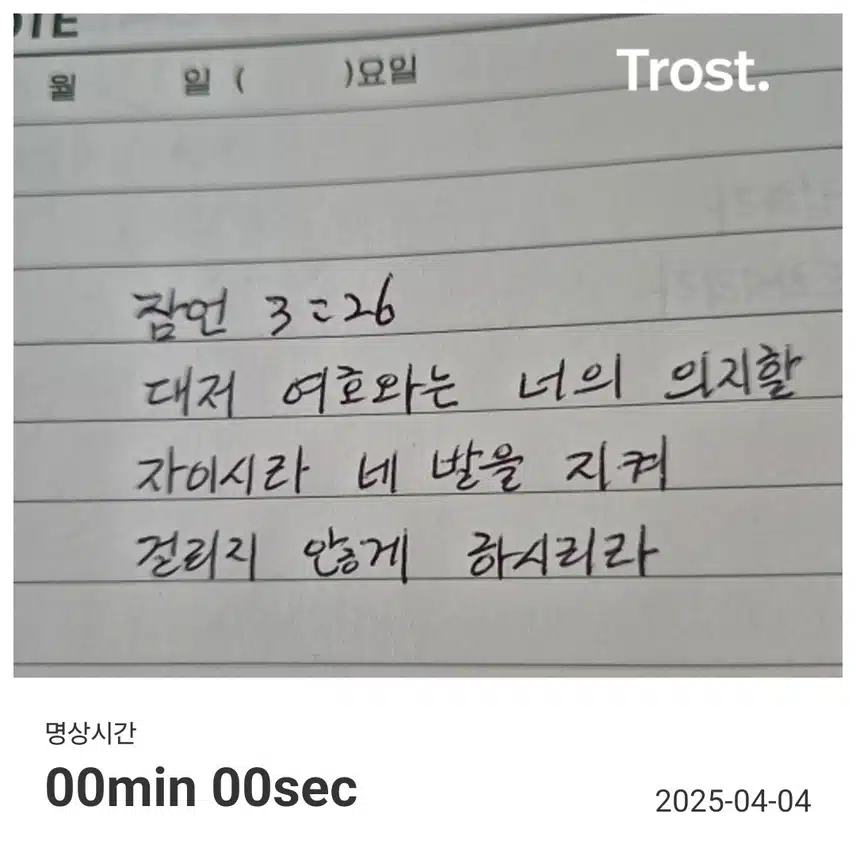 Trost.
월 일 ( )요일
잠언 3:26
대저 여호와는 너의 의지할
자이시라 네 발을 지켜
걸리지 않게 하시리라
명상시간
00min 00sec
2025-04-04